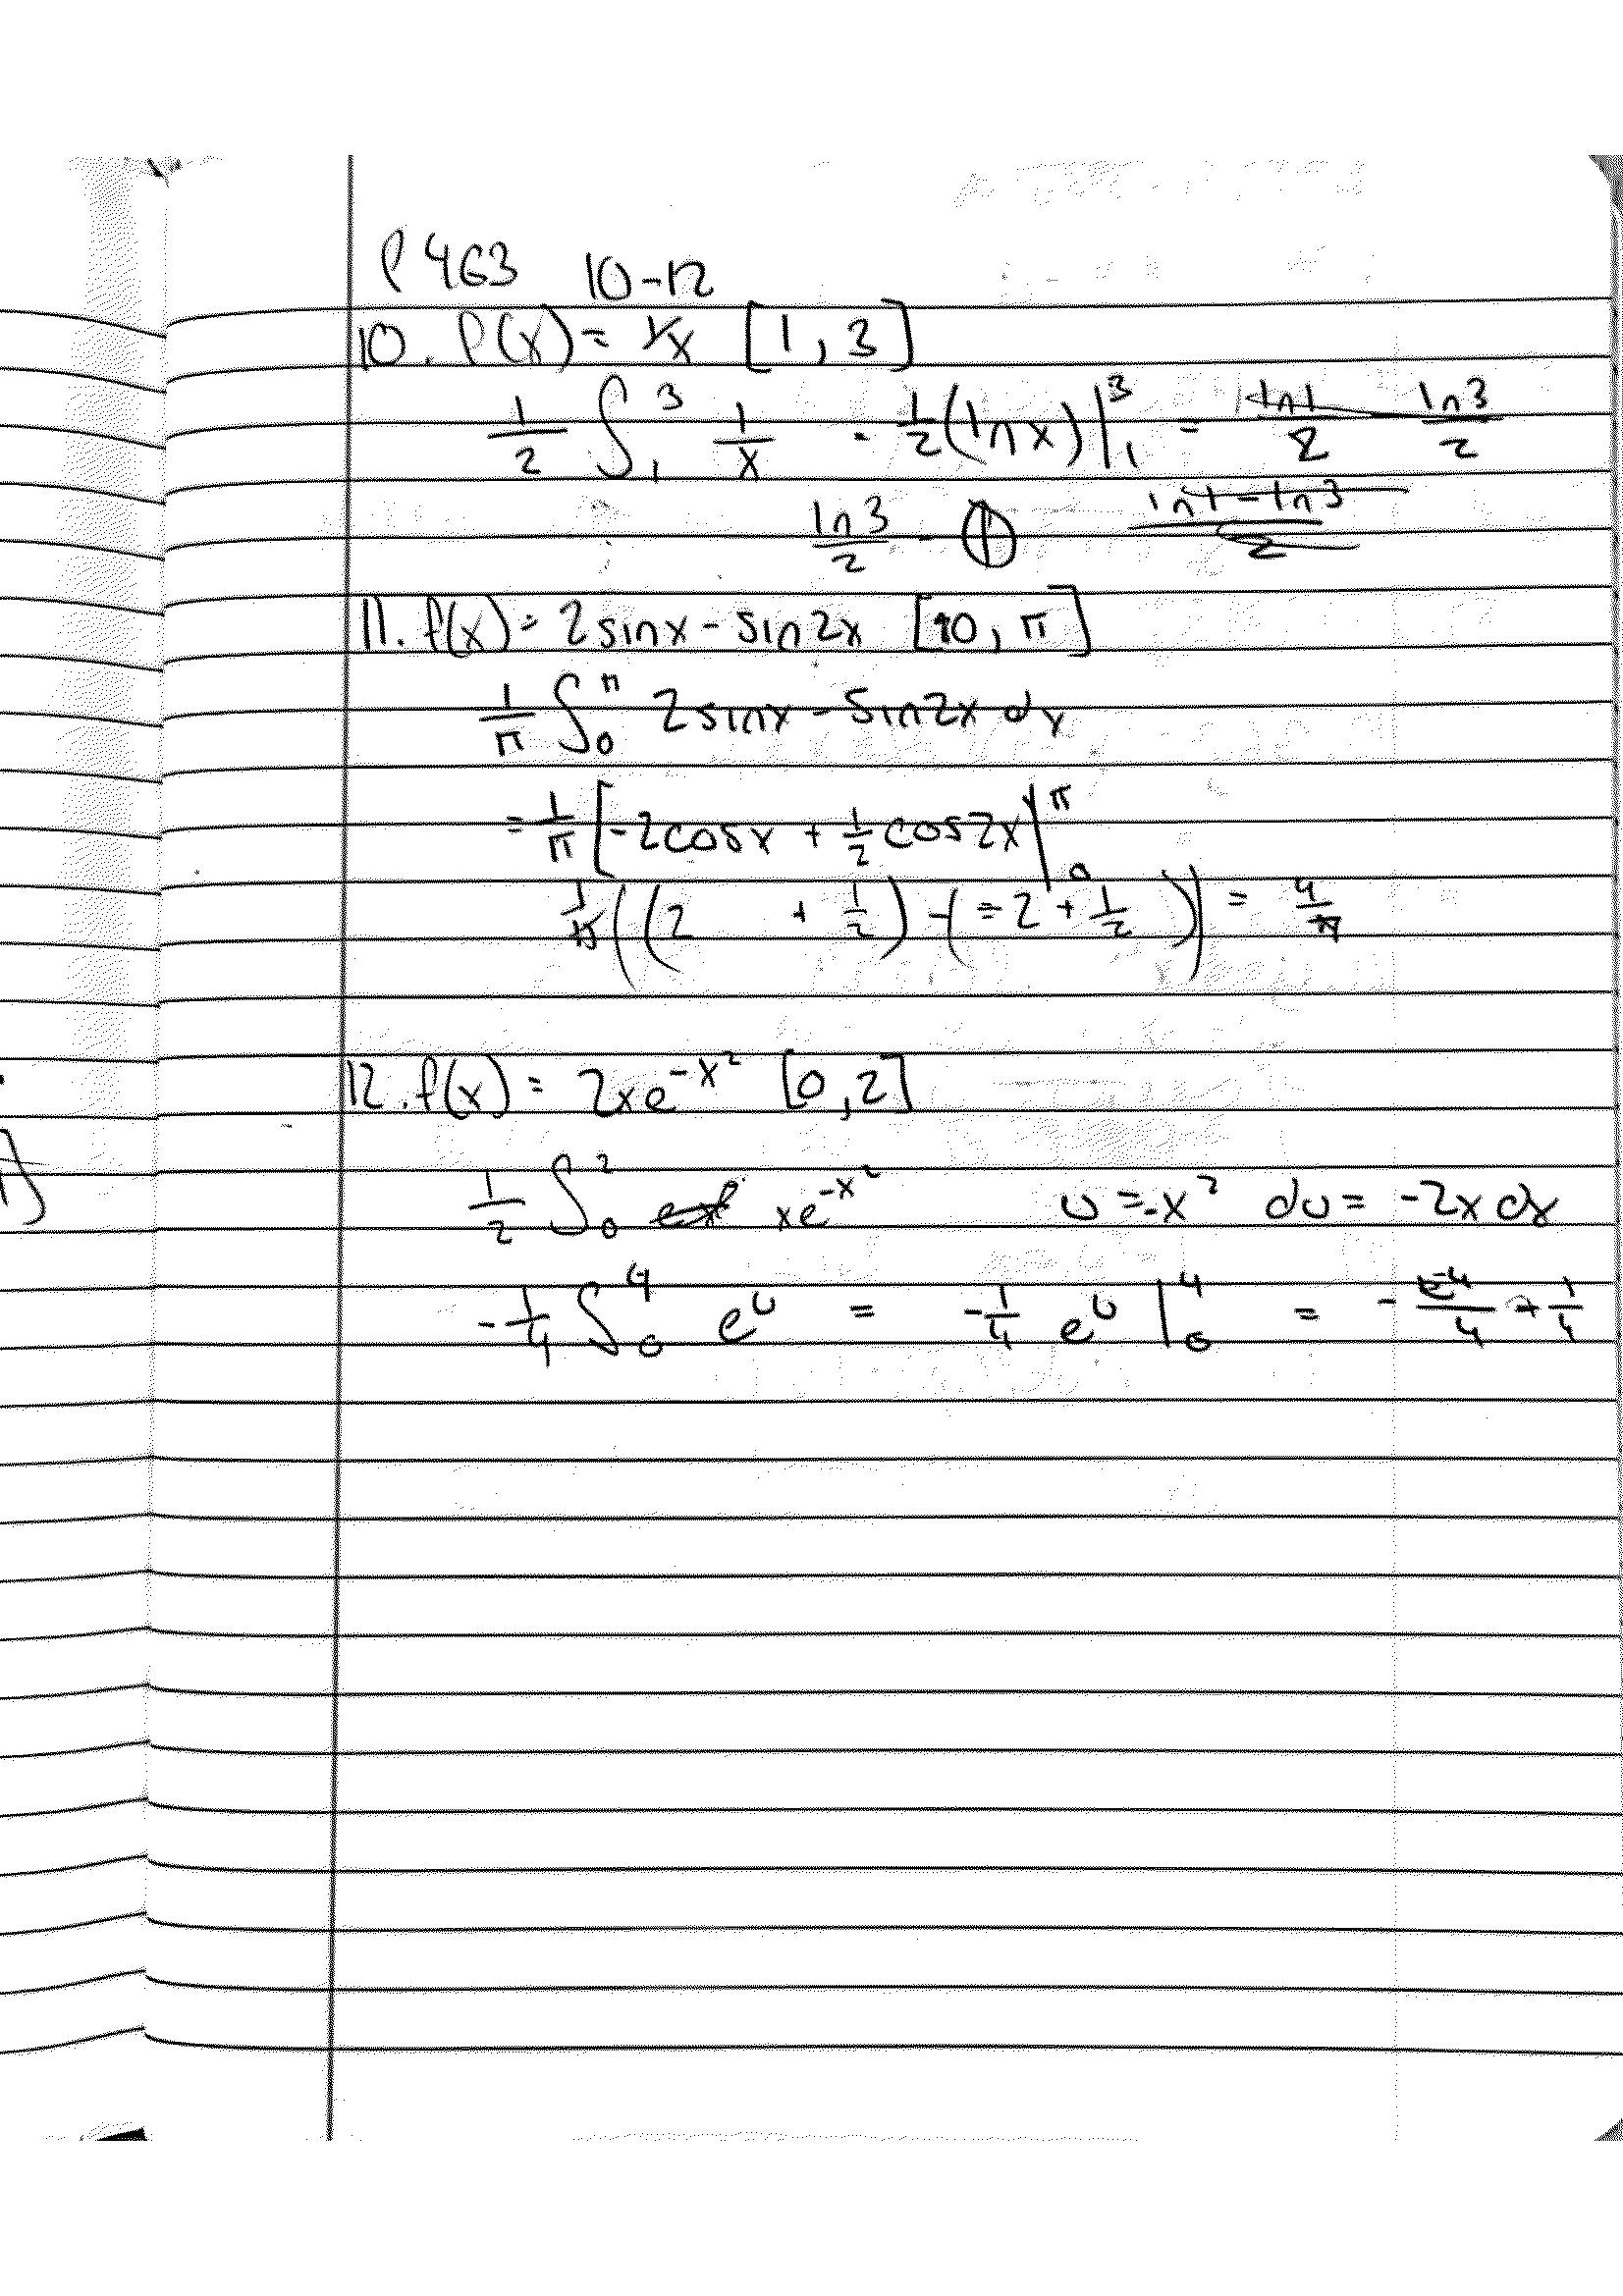 P 463 10-12
10. f(x) = 1/x [1, 3]
1/2 ∫₁³ 1/x = 1/2 (ln x)|₁³ = ln1/2 ln3/2
ln3/2 - 0 ln1-ln3/2
11. f(x) = 2sinx - sin2x [0, π]
1/π ∫₀^π 2sinx - sin2x dx
= 1/π [-2cosx + 1/2 cos2x|₀^π
1/π((2 + 1/2) - (-2 + 1/2)) = 4/π
12. f(x) = 2xe^-x² [0,2]
1/2 ∫₀² xe^-x² u = -x² du = -2x dx
-1/4 ∫₀⁴ e^u = -1/4 e^u |₀⁴ = - e^-4/4 + 1/4